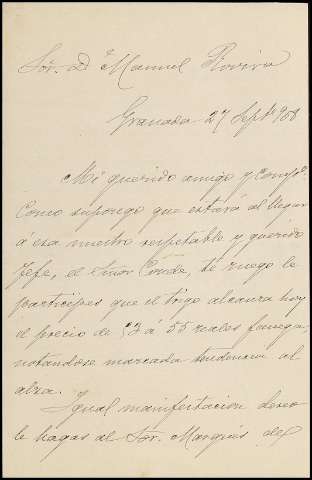 Sór. Dn Manuel Rovira
Granada 27 Septe 908
Mi querido amigo y Compo.
Como supongo que estará al llegar
á esa nuestro respetable y querido
Jefe, el Señor Conde, te ruego le
participes que el trigo alcanza hoy
el precio de 53 á 55 reales fanega,
notandose marcada tendencia al
alza.
Igual manifestacion deseo
le hagas al Sór. Marqués del